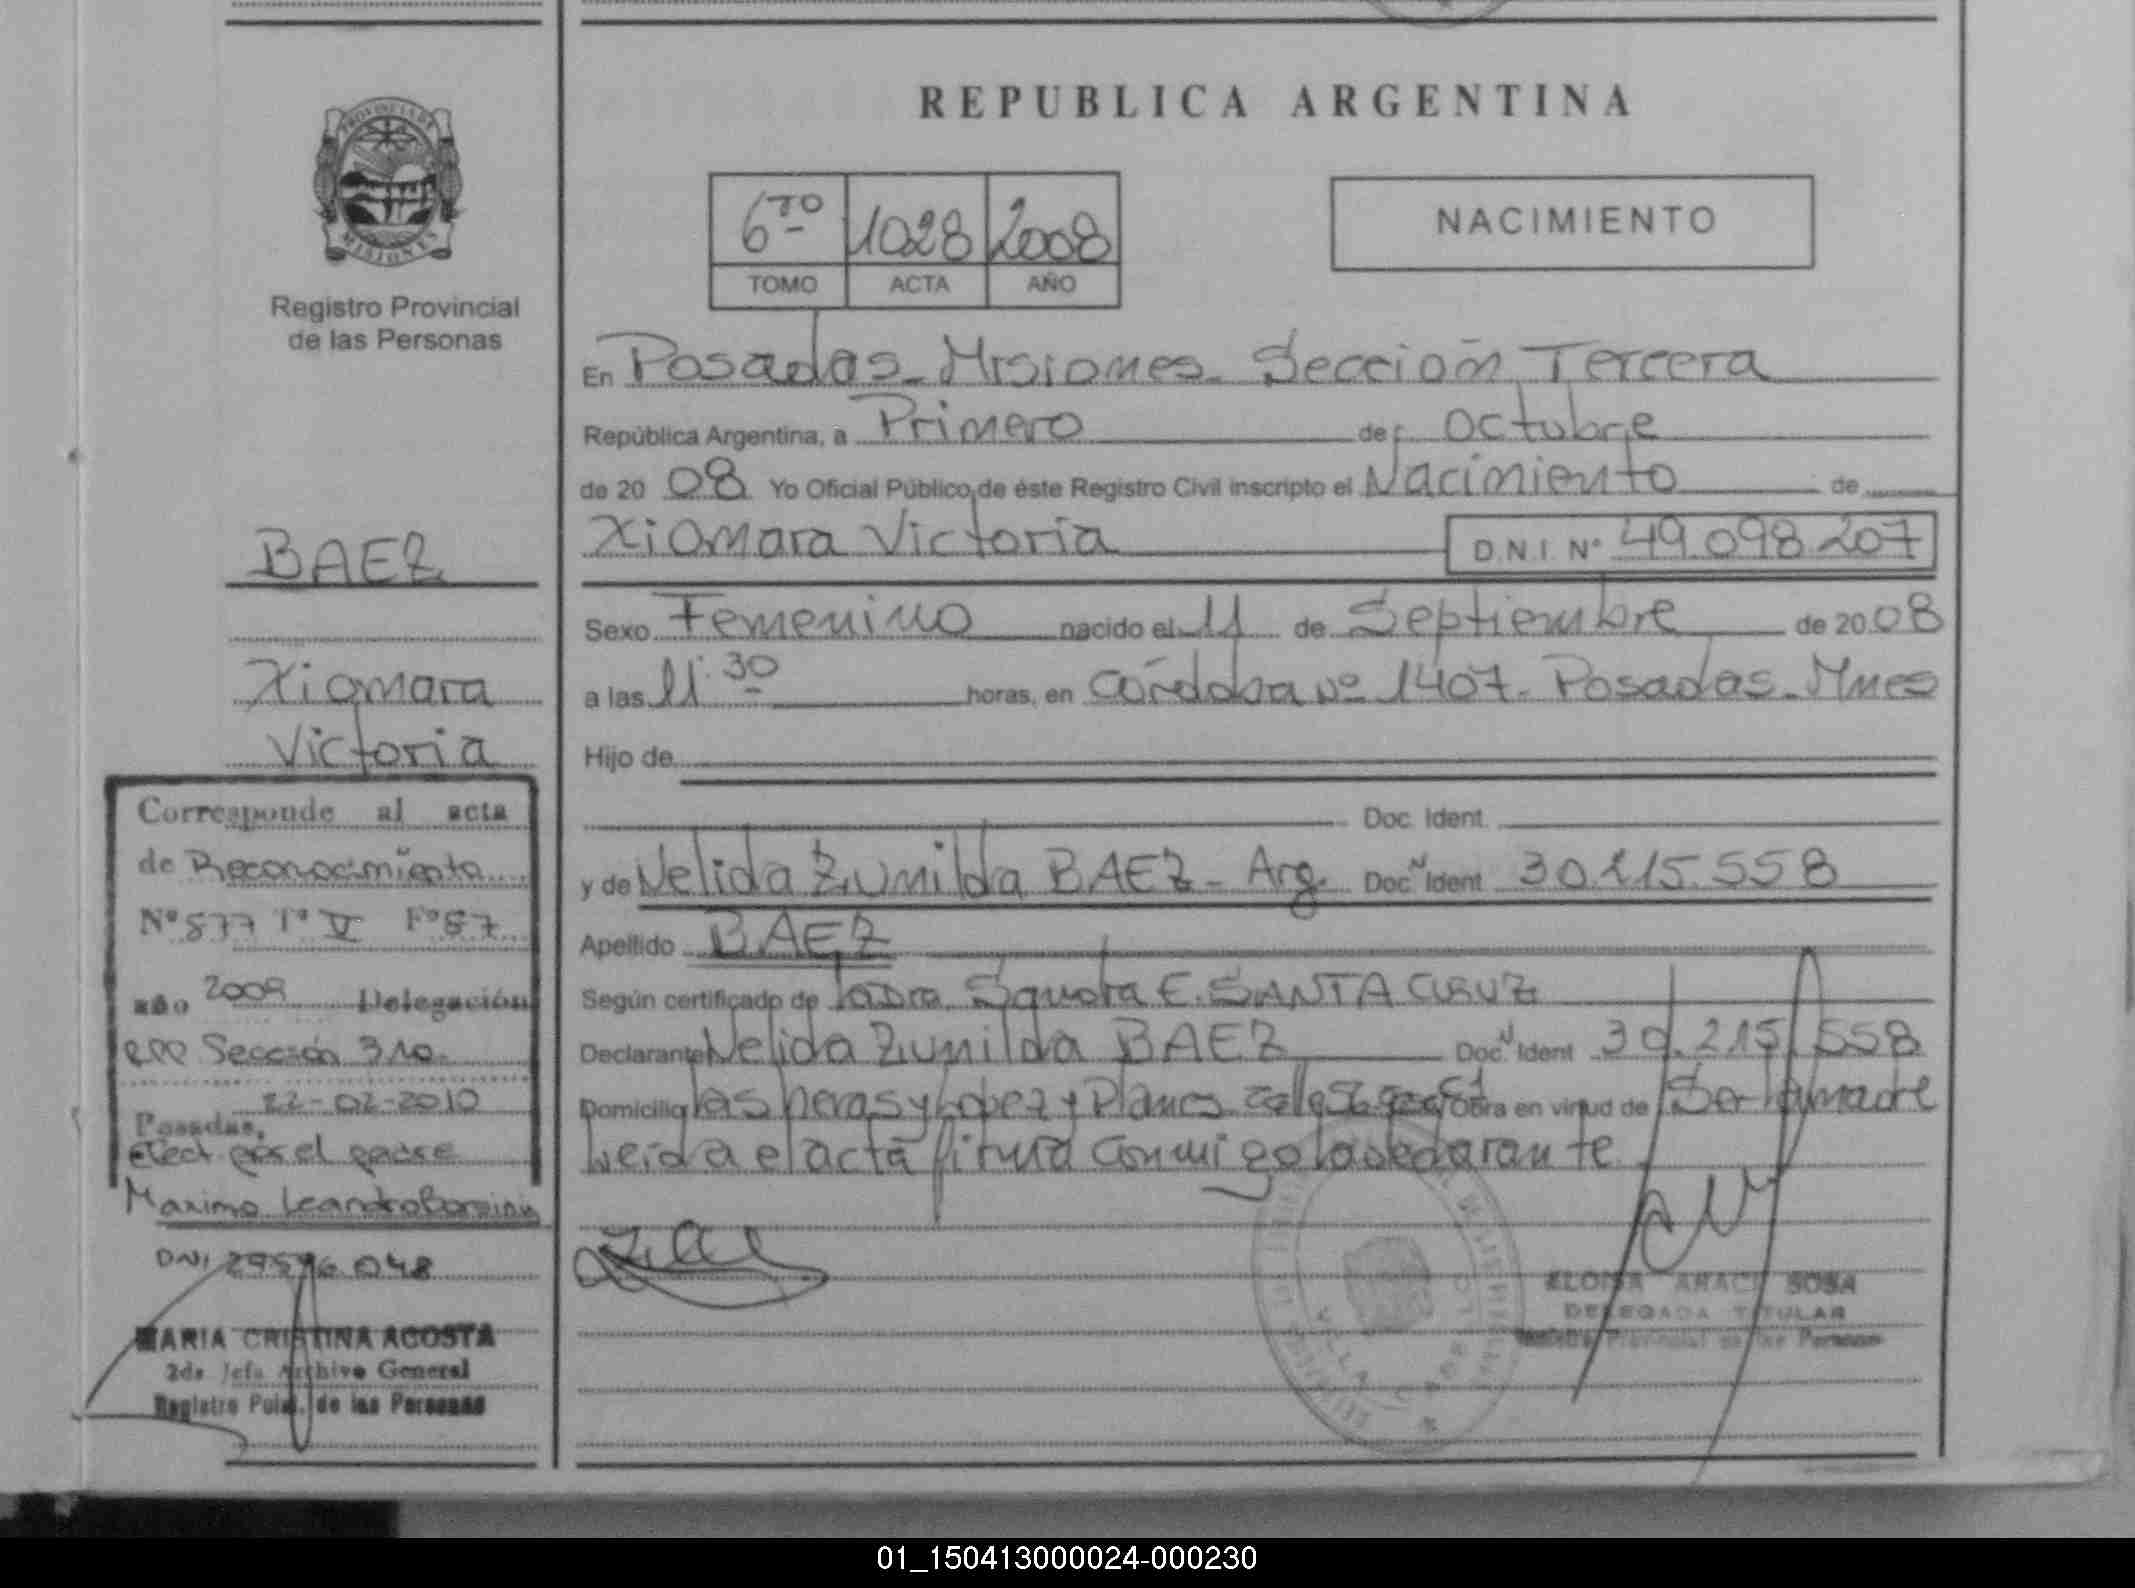 REPUBLICA ARGENTINA
PROVINCIA DE
MISIONES
Registro Provincial
de las Personas
6TO 1028 2008
TOMO ACTA AÑO
NACIMIENTO
En Posadas - Misiones - Sección Tercera
República Argentina, a Primero de Octubre
de 20 08 Yo Oficial Público de éste Registro Civil inscripto el Nacimiento de
Xiomara Victoria D.N.I. Nº 49.098.207
Sexo Femenino nacido el 11 de Septiembre de 20 08
a las 11:30 horas, en Córdoba Nº 1407 - Posadas - Mnes
Hijo de
Doc. Ident.
y de Nelida Zunilda BAEZ - Arg. Doc. N Ident 30.215.558
Apellido BAEZ
Según certificado de E. SANTA CRUZ
Declarante Nelida Zunilda BAEZ Doc. N Ident 30.215.558
Domicilio las heras y Lopez y Planes Obra en virtud de Ser la madre
Leida el acta firma conmigo la declarante
ELOISA ARACI SOSA
DELEGADA TITULAR
Registro Provincial de las Personas
BAEZ
Xiomara
Victoria
Corresponde al acta
de Reconocimiento
Nº 577 Tº V Fº 87
año 2009 Delegación
RPP Sección 3ra.
Posadas, 22-02-2010
efect. por el padre
Maximo Leandro
DNI 29596.048
MARIA CRISTINA ACOSTA
2da Jefa Archivo General
Registro Pcial. de las Personas
01_150413000024-000230